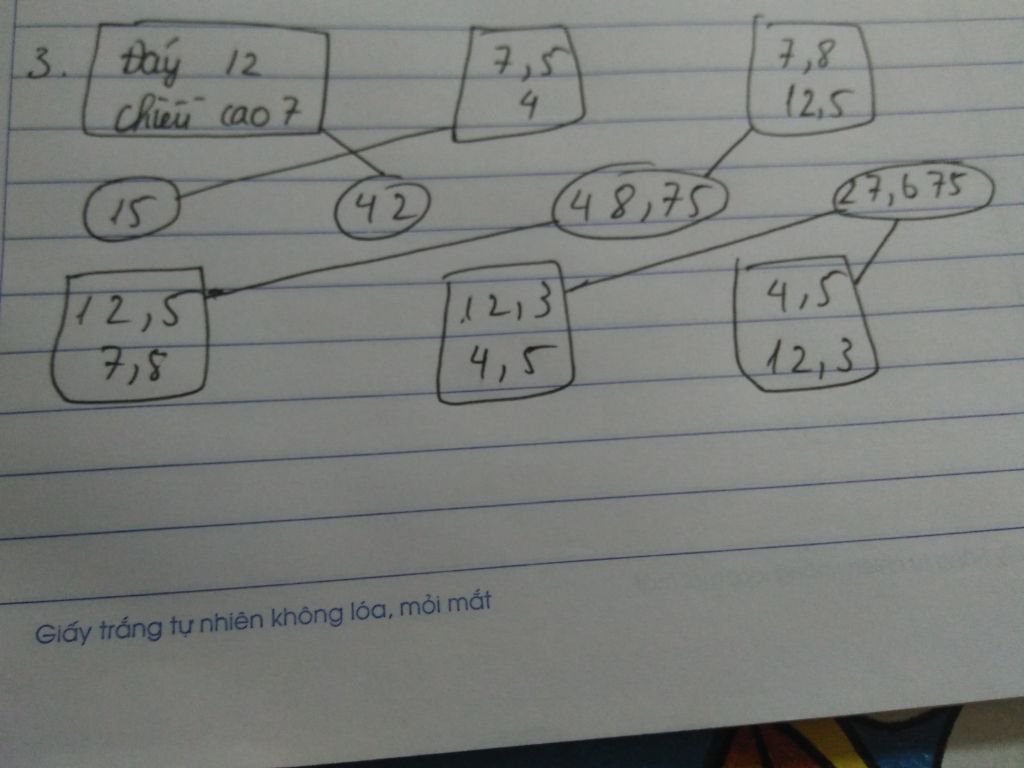 3. Đáy 12
chiều cao 7
7,5
4
7,8
12,5
15
42
48,75
27,675
12,5
7,8
12,3
4,5
4,5
12,3
Giấy trắng tự nhiên không lóa, mỏi mắt